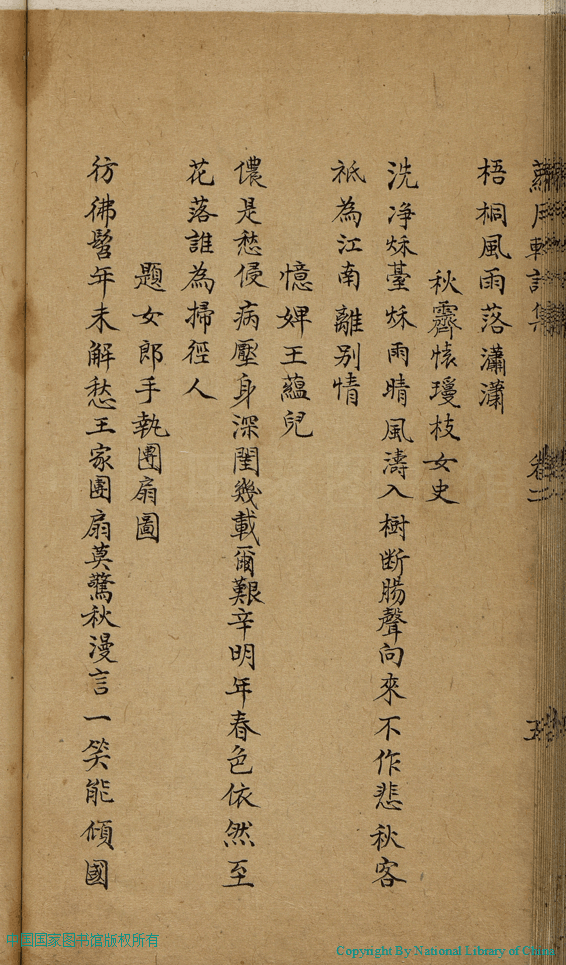 梧桐風雨落瀟瀟
秋霽懷瓊枝女史
洗净秌臺秌雨晴風濤入樹断腸聲向來不作悲秋客
祗為江南離别情
憶婢王蘊兒
儂是愁侵病壓身深閨幾載爾艱辛明年春色依然至
花落誰為掃徑人
題女郎手執團扇圖
彷彿髫年未解愁王家團扇莫驚秋漫言一笑能傾國
中国国家图书馆版权所有
Copyright By National Library of China.